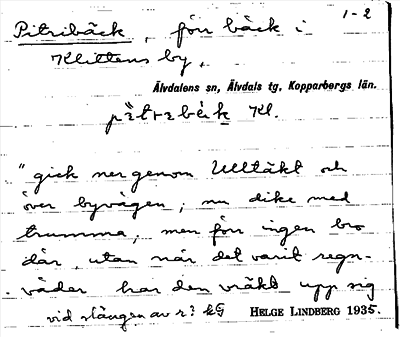 1-2
Pitribäck, förr bäck i
Klittens by.
Älvdalens sn, Älvdals tg, Kopparbergs län.
Kl.
"gick ner genom Ulltäkt och
över byvägen; nu dike med
trumma, men förr ingen bro
där, utan när det varit regn-
väder har den vräkt upp sig
vid slängen av r? kG
HELGE LINDBERG 1935.